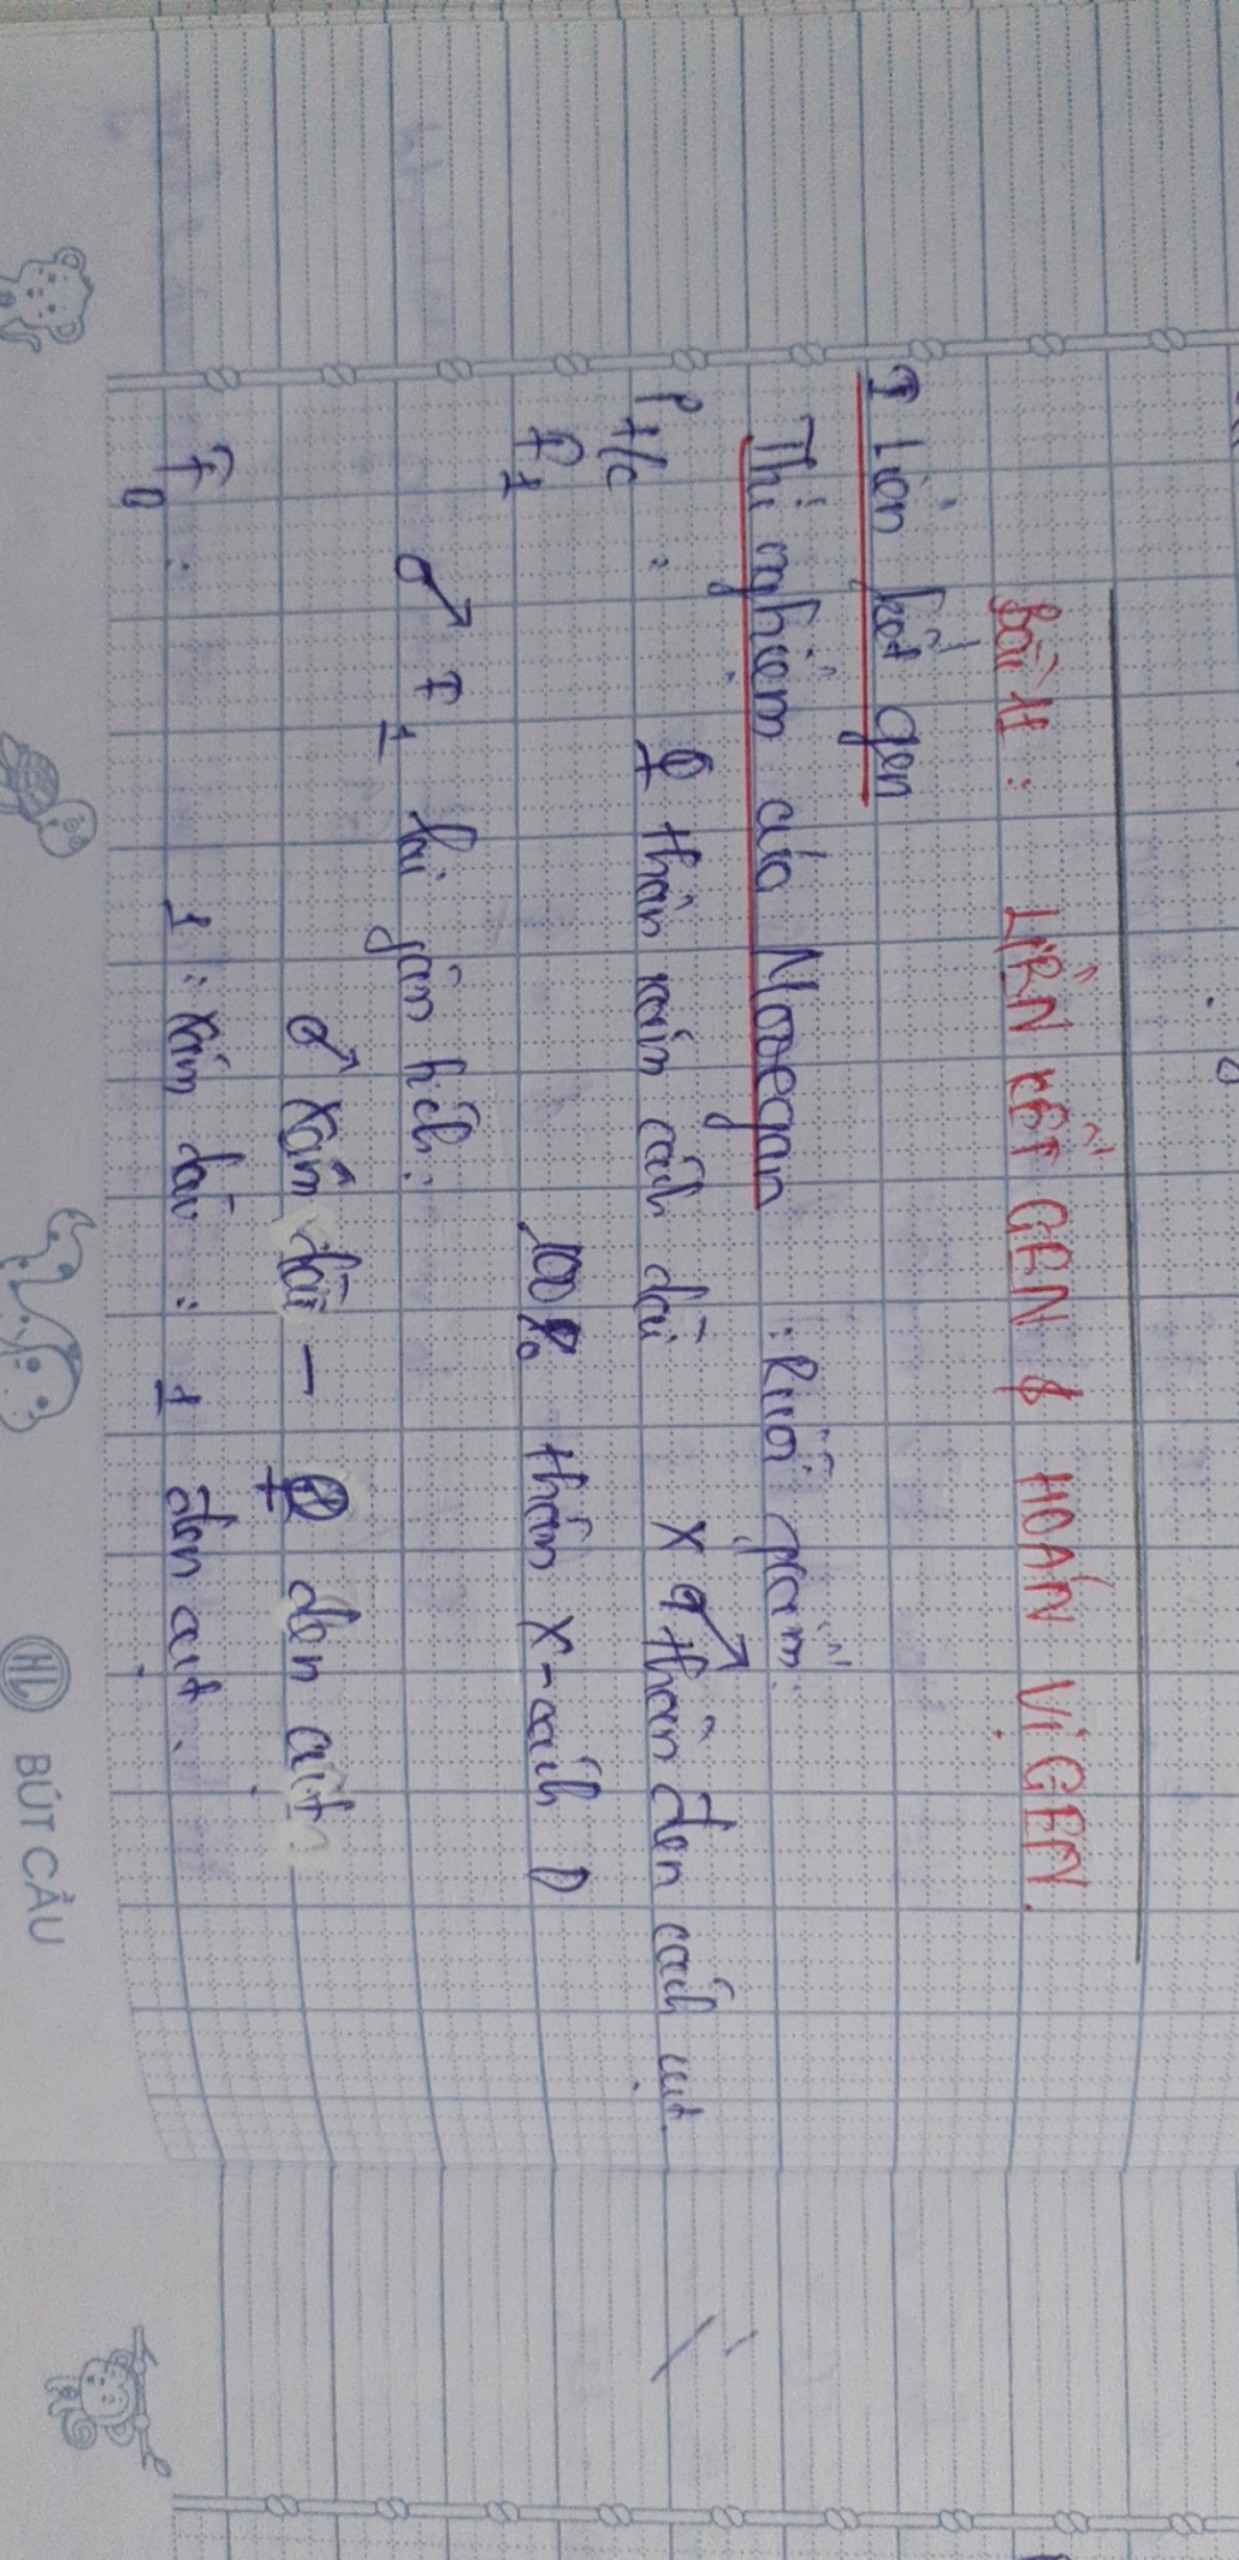 Bài 11 : LIÊN KẾT GEN & HOÁN VỊ GEN.
I Liên kết gen
Thí nghiệm của Moocgan : Ruồi giấm.
P t/c : ♀ thân xám cánh dài x ♂ thân đen cánh cụt.
F1 100% thân x-cánh D
♂ F1 lai phân tích :
♂ xám dài - ♀ đen cụt
Fa : 1 : xám dài : 1 đen cụt.
HL BÚT CẦU